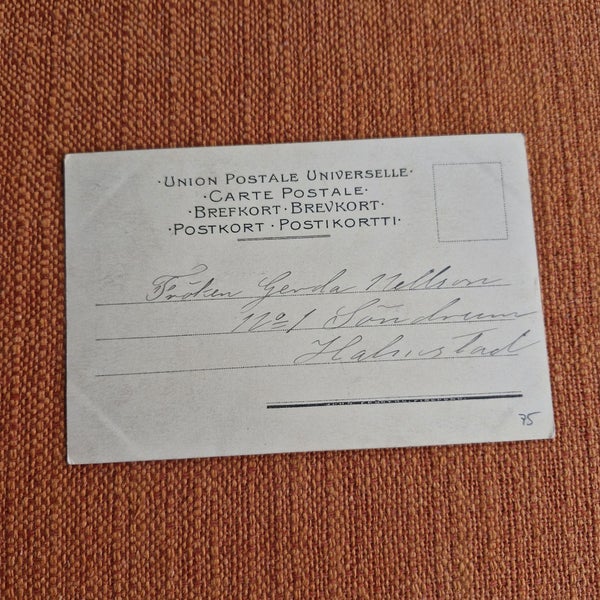 ·UNION POSTALE UNIVERSELLE·
·CARTE POSTALE·
·BREFKORT·BREVKORT·
·POSTKORT·POSTIKORTTI·
Fröken Gerda Nellson
No 1 Söndrum
Halmstad
75